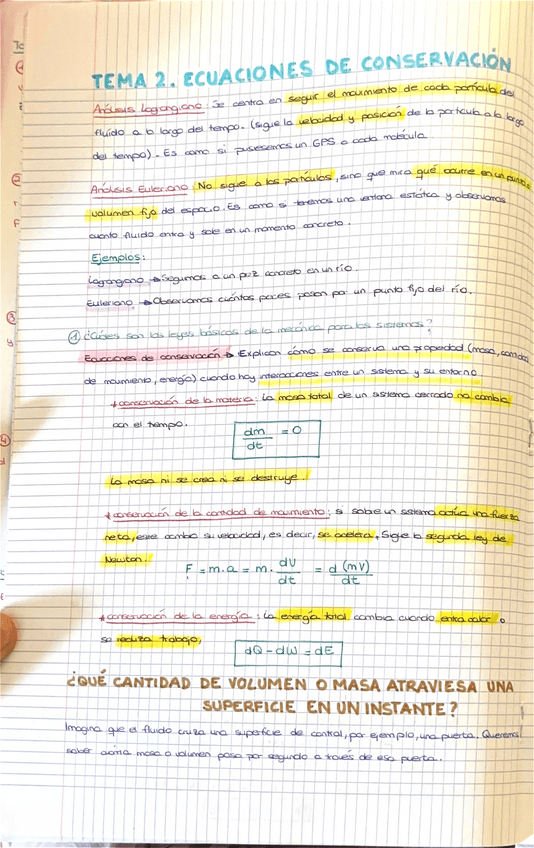 TEMA 2. ECUACIONES DE CONSERVACIÓN
Análisis Lagrangiano: Se centra en seguir el movimiento de cada partícula del
fluido a lo largo del tempo. (sigue la velocidad y posición de la partícula a lo largo
del tempo). Es como si pusiesemos un GPS a cada molécula.
Análisis Euleriano: No sigue a las partículas, sino que mira qué ocurre en un punto o
volumen fijo del espacio. Es como si tenemos una ventana estática y observamos
cuanto fluido entra y sale en un momento concreto.
Ejemplos:
Lagrangiano → Seguimos a un pez concreto en un río.
Euleriano → Observamos cuántos peces pasan por un punto fijo del río.
① ¿Cuáles son las leyes básicas de la mecánica para los sistemas?
Ecuaciones de conservación → Explican cómo se conserva una propiedad (masa, cantidad
de movimiento, energía) cuando hay interacciones entre un sistema y su entorno.
* conservación de la materia: La masa total de un sistema cerrado no cambia
con el tiempo.
dm/dt = 0
La masa ni se crea ni se destruye.
* conservación de la cantidad de movimiento: si sobre un sistema actúa una fuerza
neta, este cambia su velocidad, es decir, se acelera. Sigue la segunda ley de
Newton.
F = m.a = m. dV/dt = d(mV)/dt
* conservación de la energía: La energía total cambia cuando entra calor o
se realiza trabajo,
dQ - dW = dE
¿QUÉ CANTIDAD DE VOLUMEN O MASA ATRAVIESA UNA
SUPERFICIE EN UN INSTANTE?
Imagina que el fluido cruza una superficie de control, por ejemplo, una puerta. Queremos
saber cuánta masa o volumen pasa por segundo a través de esa puerta.